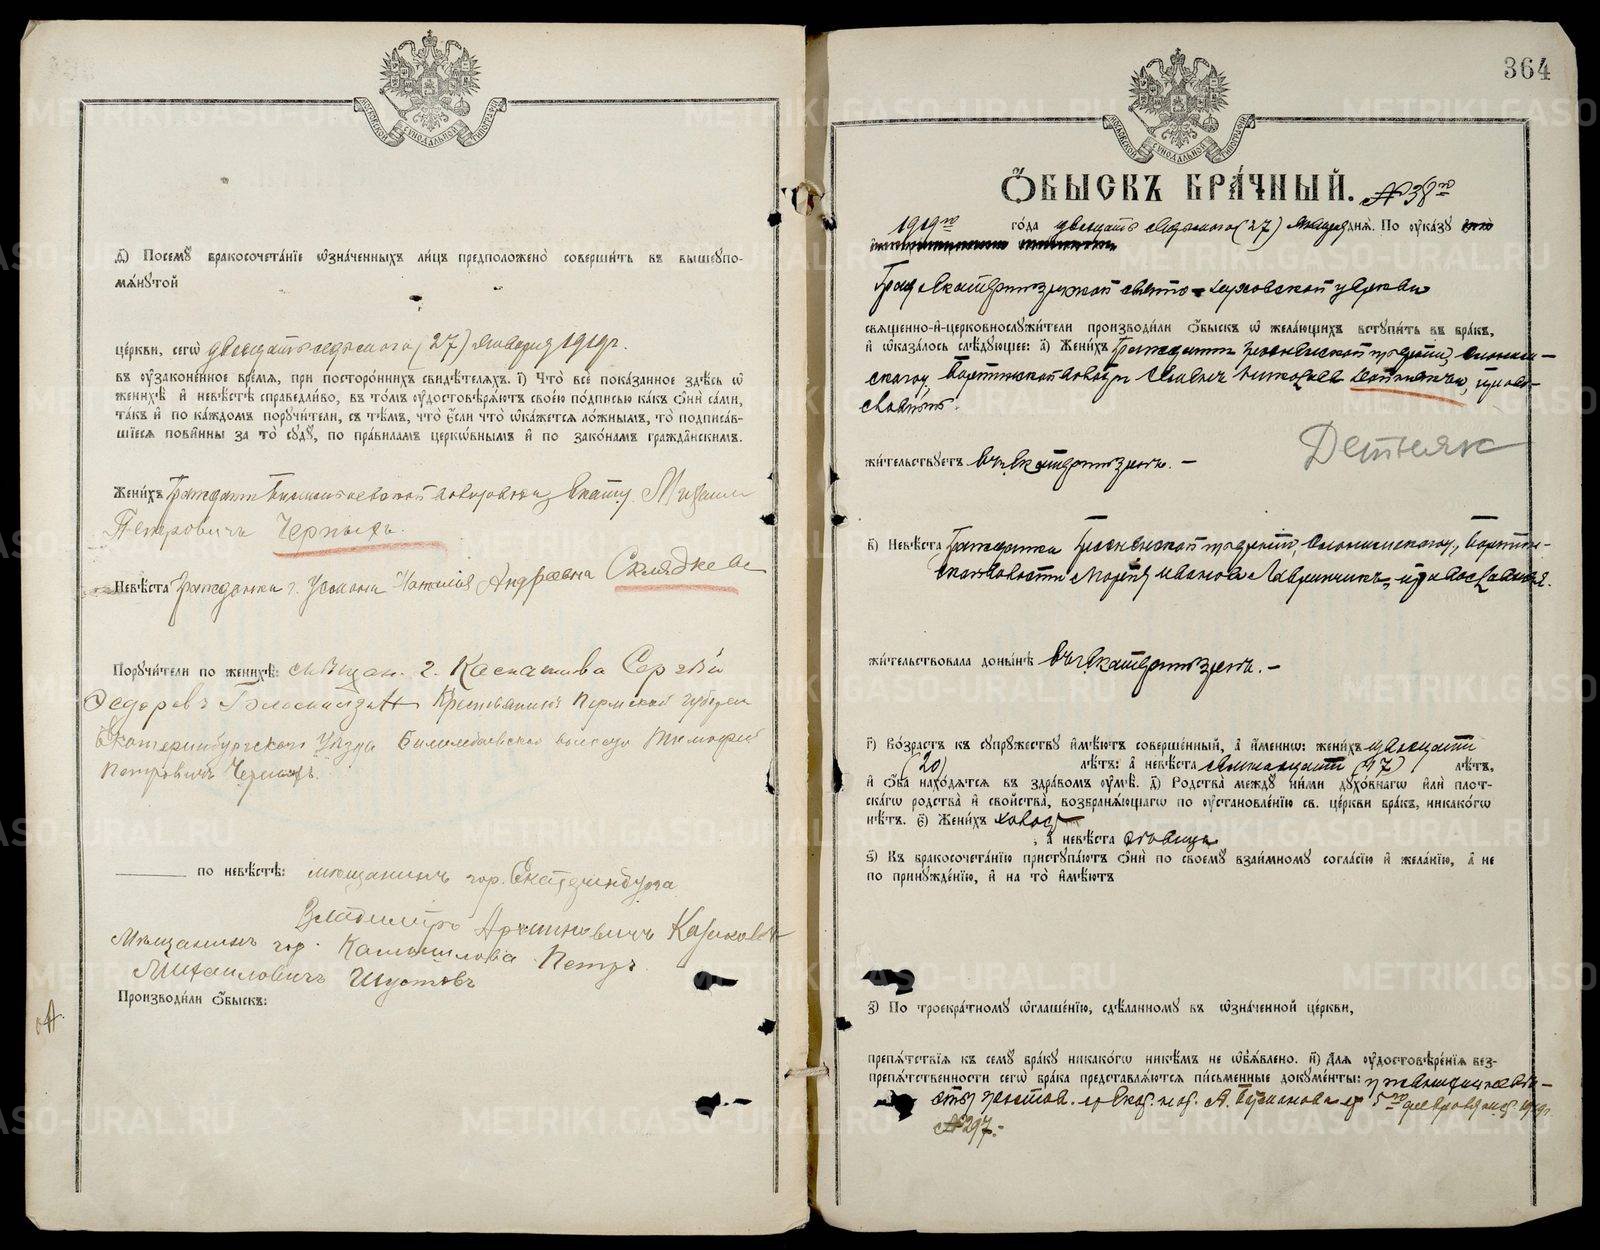 МОСКОВСКОЙ СѴНОДАЛЬНОЙ ТИПОГРАФІИ
д҃) Посемꙋ бракосочета́нїе ѡ҆зна́ченныхъ ли́цъ предположено̀ соверши́ть въ вышеꙋпо-
мѧ́нꙋтой
це́ркви, сегѡ̀ двадцать седьмого (27) Января 1919 г.
въ ᲂу҆зако́ненное вре́мя, при посторо́ннихъ свидѣ́телѧхъ. і҃) Что̀ всѐ пока́занное здѣ́сь ѡ҆
женихѣ̀ и҆ невѣ́стѣ справедли́во, въ то́мъ ᲂу҆достовѣрѧ́ютъ свое́ю по́дписью ка́къ ѻ҆нѝ са́ми,
та́къ и҆ по ка́ждомъ порꙋчи́тели, съ тѣ́мъ, что̀ є҆́сли что̀ ѡ҆ка́жетсѧ ло́жнымъ, то̀ подписа́в-
шїесѧ пови́нны за то̀ сꙋдꙋ̀, по пра́виламъ церко́внымъ и҆ по зако́намъ гражда́нскимъ.
Жени́хъ Гражданинъ Билимбаевской волости Екат. у. Михаилъ
Петровичъ Черныхъ.
Невѣ́ста Гражданка г. Усмани Наталія Андреевна Склядкева
Порꙋчи́тели по женихѣ̀: г. Камышлова Сергѣй
Федоровъ Крестьянинъ Пермской губерніи
Екатеринбургскаго Уѣзда Билимбаевской волости Тимофей
Петровичъ Черныхъ.
по невѣ́стѣ: мещанинъ гор. Екатеринбурга
Владимиръ Казаковъ
Мещанинъ гор. Камышлова Петръ
Михаиловичъ Шустовъ
Производи́ли ѻ҆́быскъ:
364
МОСКОВСКОЙ СѴНОДАЛЬНОЙ ТИПОГРАФІИ
Ѻ҆́БЫСКЪ БРА́ЧНЫЙ. № 38й
1919го го́да двадцать седьмого (27) Января днѧ̀. По ᲂу҆ка́зꙋ
Град Екатеринбургской Свято-Духовской церкви
свѧще́нно-и҆-церковнослꙋжи́тели производи́ли ѻ҆́быскъ ѡ҆ жела́ющихъ встꙋпи́ть въ бра́къ,
и҆ ѡ҆каза́лось слѣ́дꙋющее: а҃) Жени́хъ Гражданинъ Гродненской губерніи, Слоним-
скаго у. волости Николаевъ Детнякъ, право-
славный.
жи́тельствꙋетъ въ г. Екатеринбургѣ. -
Детняк
в҃) Невѣ́ста Гражданка Гродненской губерніи, Слонимскаго у.,
волости Марія Иванова Лавринчикъ, православная.
жи́тельствовала доны́нѣ въ г. Екатеринбургѣ. -
г҃) Во́зрастъ къ сꙋпрꙋ́жествꙋ и҆мѣ́ютъ соверше́нный, а҆ и҆́меннѡ: жени́хъ двадцати
(20) лѣ́тъ: а҆ невѣ́ста семнадцати (17) лѣ́тъ,
и҆ ѻ҆́ба нахо́дѧтсѧ въ здра́вомъ ᲂу҆мѣ̀. д҃) Родства̀ междꙋ ни́ми дꙋхо́внагѡ и҆лѝ пло́т-
ска́гѡ родства̀ и҆ сво́йства, возбранѧ́ющагѡ по ᲂу҆становле́нїю св. це́ркви бра́къ, никако́гѡ
нѣ́тъ. є҃) Жени́хъ холостъ
, а҆ невѣ́ста дѣвица
ѕ҃) Къ бракосочета́нїю пристꙋпа́ютъ ѻ҆нѝ по своемꙋ̀ взаи́мномꙋ согла́сїю и҆ жела́нїю, а҆ не
по принꙋжде́нїю, и҆ на то̀ и҆мѣ́ютъ
з҃) По троекра́тномꙋ ѡ҆глаше́нїю, сдѣ́ланномꙋ въ ѡ҆зна́ченной це́ркви,
препѧ́тствїѧ къ семꙋ̀ бра́кꙋ никако́гѡ никѣ́мъ не ѡ҆бъѧ́влено. и҃) Для ᲂу҆достовѣре́нїѧ без-
препѧ́тственности сегѡ̀ бра́ка представлѧ́ютсѧ пи́сьменные докꙋме́нты:
№ 297.-
METRIKI.GASO-URAL.RU